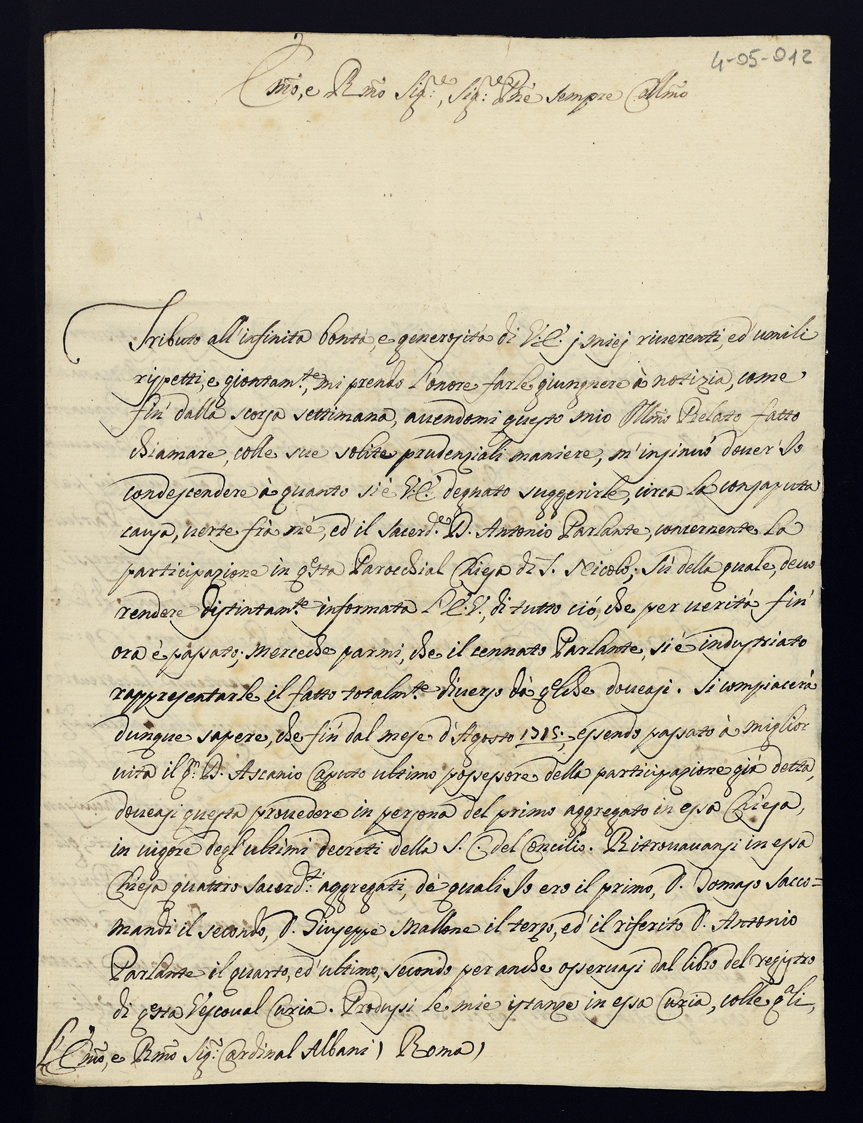 4-05-012
Emo, e Rmo Sig.re, Sig.re Pne sempre Collmo
Tributo all'infinita bontà, e generosità di V.E. j miej riverenti, ed umili
rispetti, e giontam.te, mi prendo l'onore farle giungnere à notizia, come
fin' dalla scorsa settimana, avendomi questo mio Illmo Prelato fatto
chiamare, colle sue solite prudenziali maniere, m'insinuò dover' Io
condescendere à quanto si è V.E. degnato suggerirle, circa la consaputa
causa, verte frà mè, ed il Sacerd.e D. Antonio Parlante, concernente la
participazione in q.sta Parochial Chiesa di S. Nicolò; Sù della quale, devo
rendere distintam.te informata l'E.V., di tutto ciò, che per verità fin'
ora è passato; mercecche parmi, che il cennato Parlante, si è industriato
rappresentarle il fatto totalm.te diverso dà q.lche doveasi. Si compiacerà
dunque sapere, che fin' dal mese d'Agosto 1715:, essendo passato à miglior
vita il q.m D. Ascanio Caputo ultimo possessore della participazione già detta,
doveasi questa provedere in persona del primo aggregato in essa Chiesa,
in vigore degl'ultimi decreti della S. C. del Concilio. Ritrovavansi in essa
Chiesa quattro Sacerd.ti aggregati, de quali Io ero il primo, D. Tomaso Sacco=
mandi il secondo, D. Giuseppe Mallone il terzo, ed' il riferito D. Antonio
Parlante il quarto, ed' ultimo, secondo per anche osservasi dal libro del registro
di q.sta Vescoval Curia. Produssi le mie istanze in essa Curia, colle q.li,
L'Emo, e Rmo Sig.r Cardinal Albani) Roma)